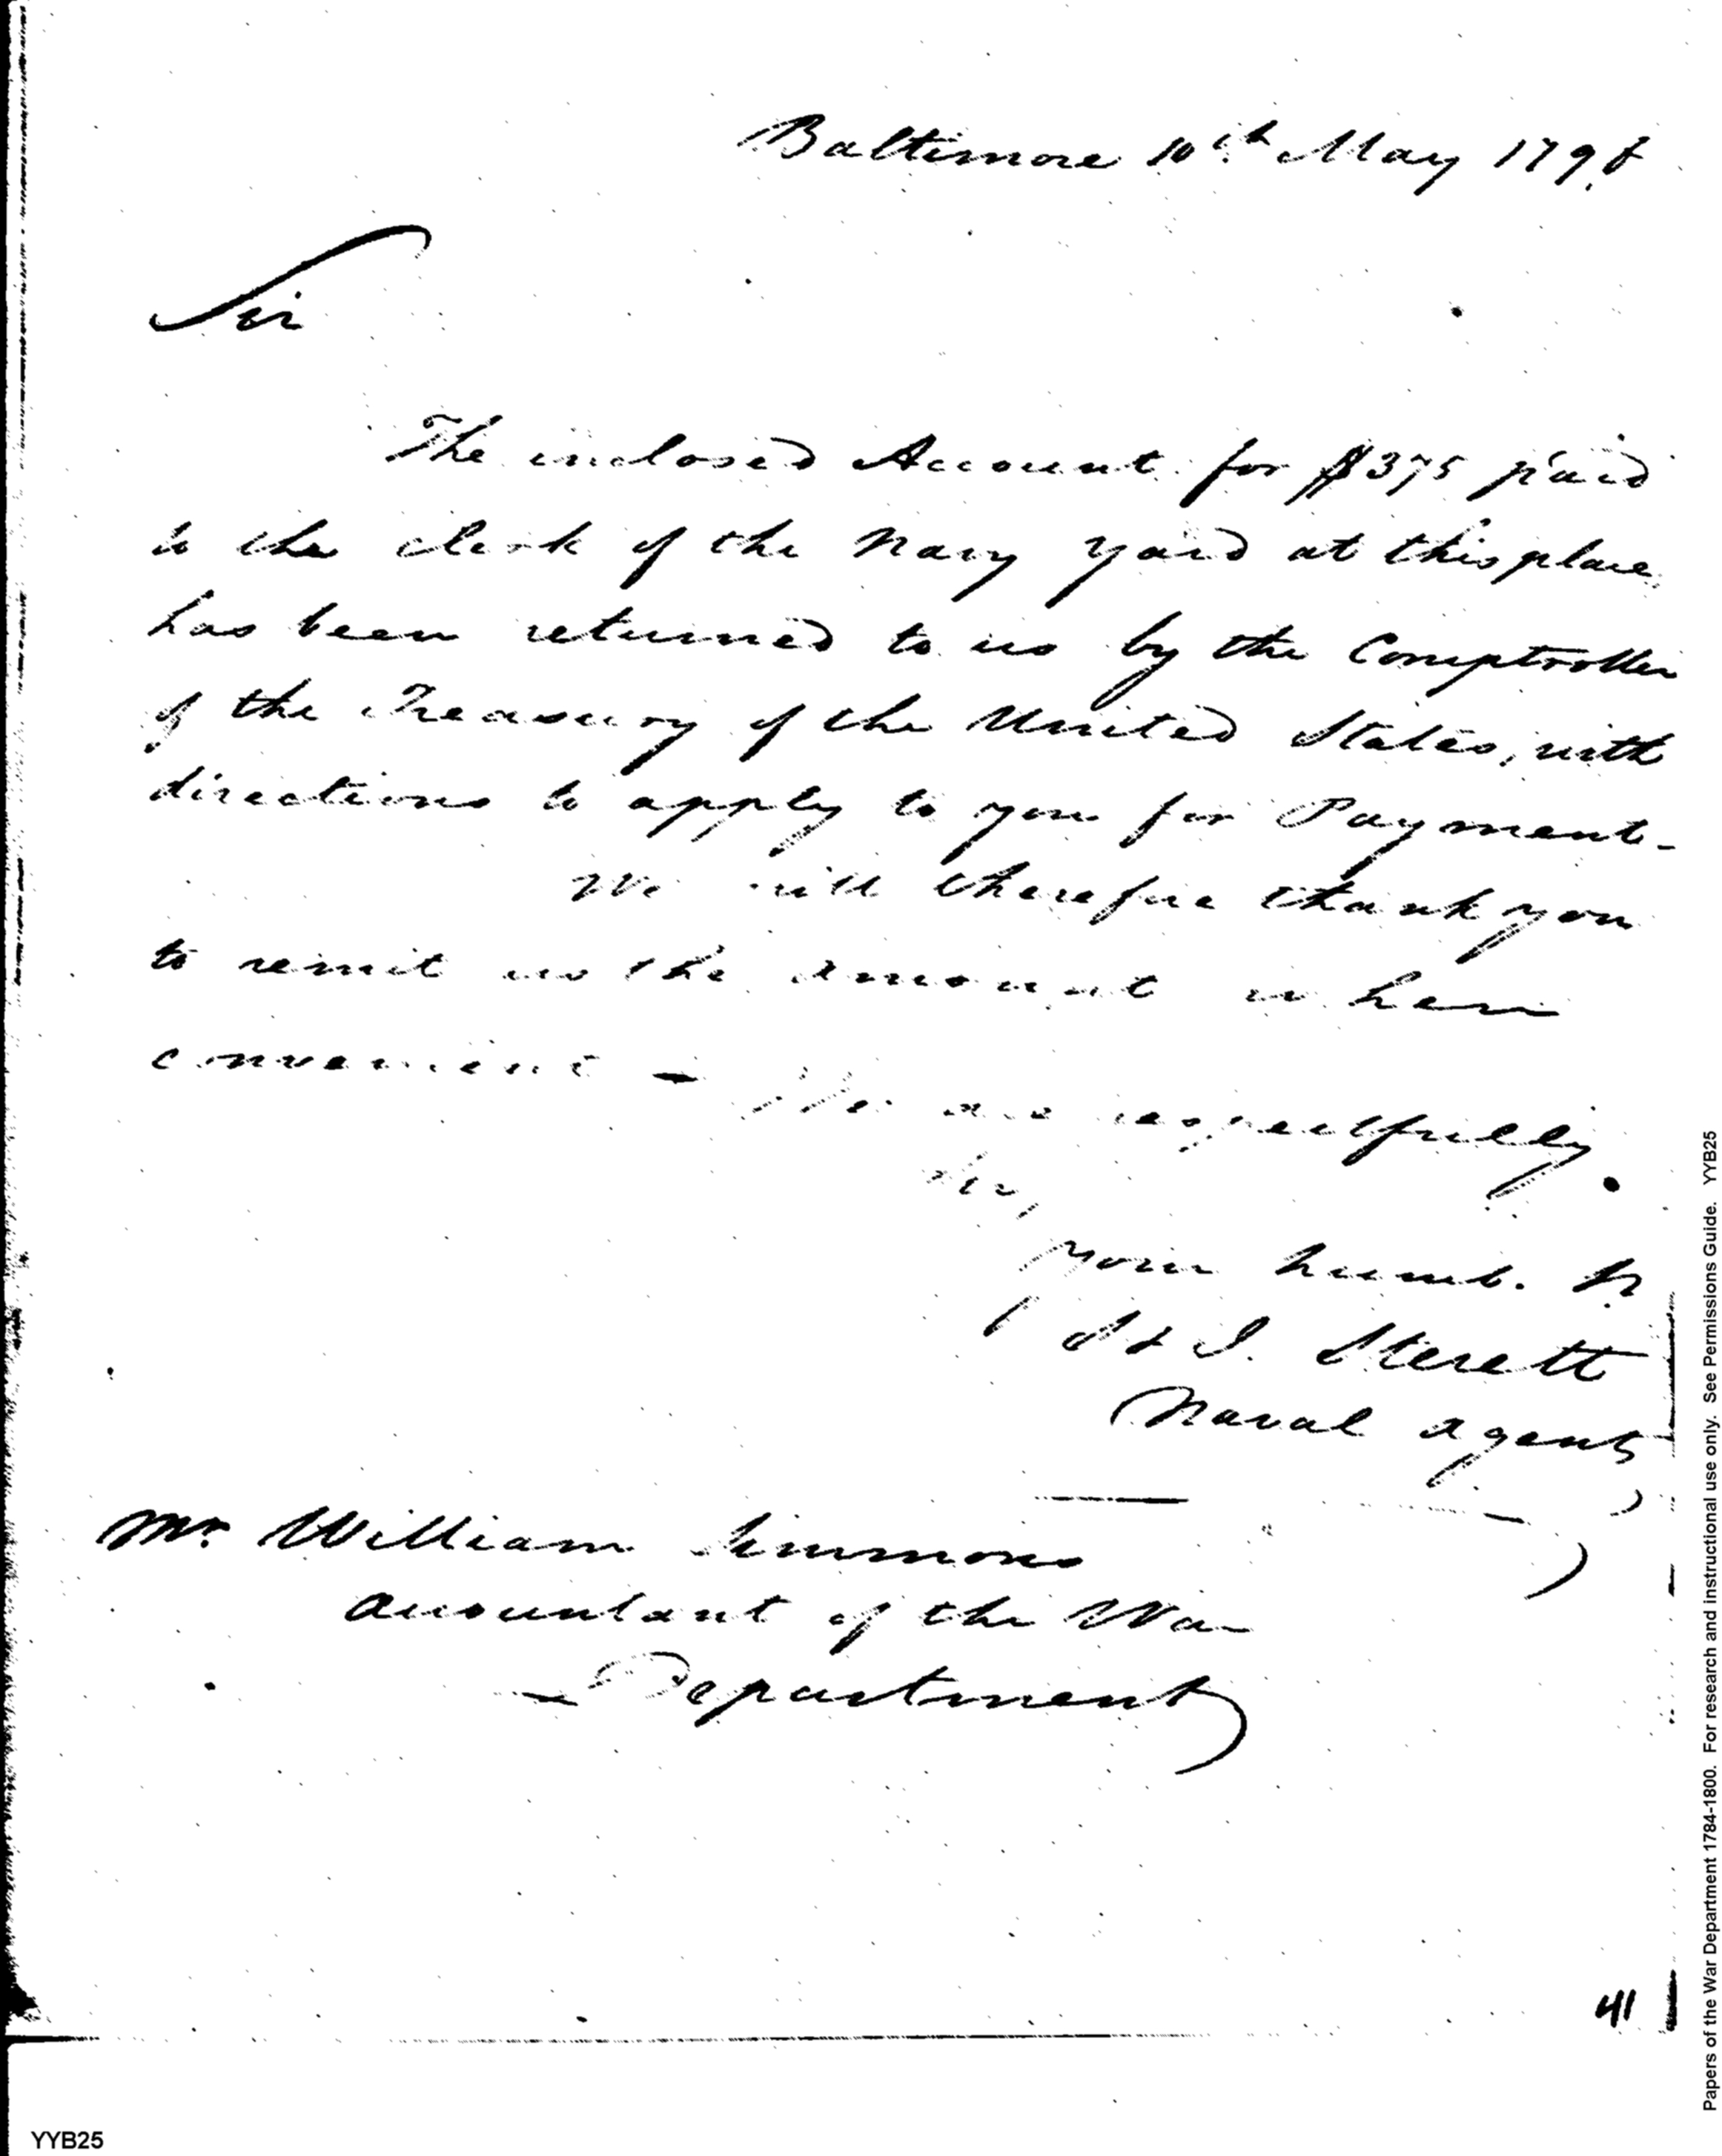 Baltimore 10th May 1798
Sir
The inclosed Account for $375 paid
to the clerk of the Navy Yard at this place
has been returned to us by the Comptroller
of the Treasury of the United States, with
directions to apply to you for Payment -
We will therefore thank you
to remit us the amount when
convenient - We are respectfully
Sir,
Your humb. Sr
S. Sterett
Naval agents
Mr. William Simmons
Accountant of the War
Department
41
YYB25
Papers of the War Department 1784-1800. For research and instructional use only. See Permissions Guide. YYB25